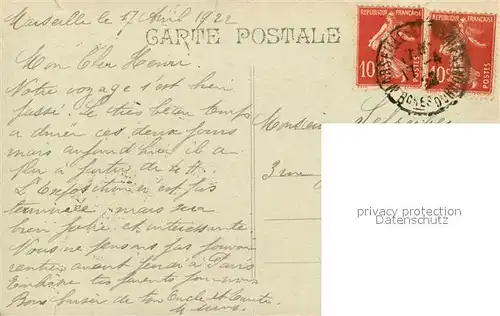 Marseille le 17 Avril 1922
CARTE POSTALE
REPUBLIQUE FRANÇAISE
10c
POSTES
REPUBLIQUE FRANÇAISE
10c
POSTES
Mon Cher Henri
Notre voyage s'est bien
passé. Le très beau temps
a durer ces deux jours
mais aujourd'hui il a
plu à partir de 4 H.
L'Exposition n'est pas
terminée mais sur
bien jolie et intéressante.
Vous ne pensons pas pouvoir
rentrer avant jeudi à Paris
Embrasse tes parents pour nous
Bons baiser de ton Oncle et Tante
Monsieur
3 rue
privacy protection
Datenschutz